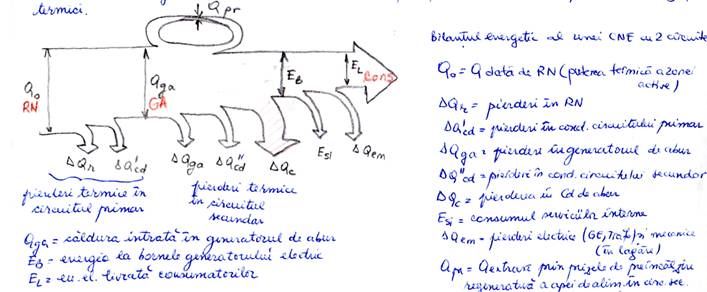 termici.
Q pr
Q₀
RN
Qga
GA
E_B
E_L
Cons
ΔQr
ΔQ'cd
ΔQga
ΔQ"cd
ΔQc
Esi
ΔQem
pierderi termice în
circuitul primar
pierderi termice
în circuitul
secundar
Qga = căldura intrată în generatorul de abur
E_B = energia la bornele generatorului electric
E_L = en. el. livrată consumatorilor
Bilanțul energetic al unei CNE cu 2 circuite
Q₀ = Q dată de RN (puterea termică a zonei
active)
ΔQr = pierderi în RN
ΔQ'cd = pierderi în cond. circuitului primar
ΔQga = pierderi în generatorul de abur
ΔQ"cd = pierderi în cond. circuitului secundar
ΔQc = pierderea în Cd de abur
Esi = consumul serviciilor interne
ΔQem = pierderi electrice (GE, Trafo) și mecanice
(în lagăre)
Qpr = Q extrasă prin prizele de preîncălzire
regenerativă a apei de alim. în circ. sec.